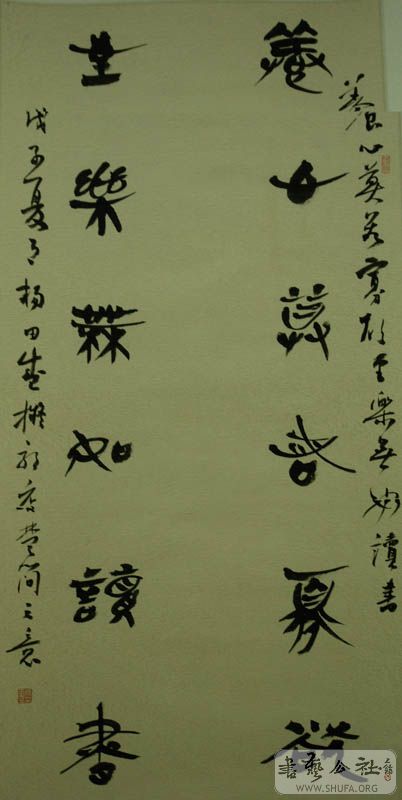 養心莫若寡欲至樂無如讀書
養心莫若寡欲
至樂無如讀書
戊子夏月楊田擬郭店楚簡之意
書藝公社
WWW.SHUFA.ORG